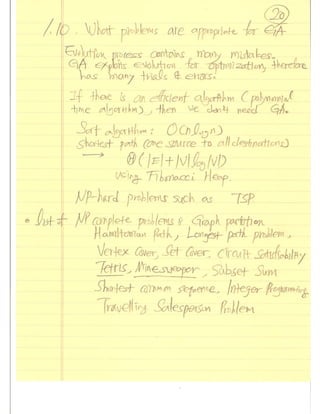 20
1.10. What problems are appropriate for GA
Evolution process contains many mistakes.
GA exploits evolution for optimization, therefore
has many trials & errors!
If there is an efficient algorithm (polynomial
time algorithm), then we don't need GA.
Sort algorithm: O(n log n)
shortest path (one source to all destinations)
→ Θ(|E|+|V|log|V|)
using Fibonacci Heap.
NP-hard problems such as TSP
• list of NP complete problems: Graph partition
Hamiltonian Path, Longest path problem,
Vertex Cover, Set Cover, Circuit Satisfiability
Tetris, Minesweeper, Subset Sum
Shortest common sequence, Integer Programming
Travelling Salesperson Problem